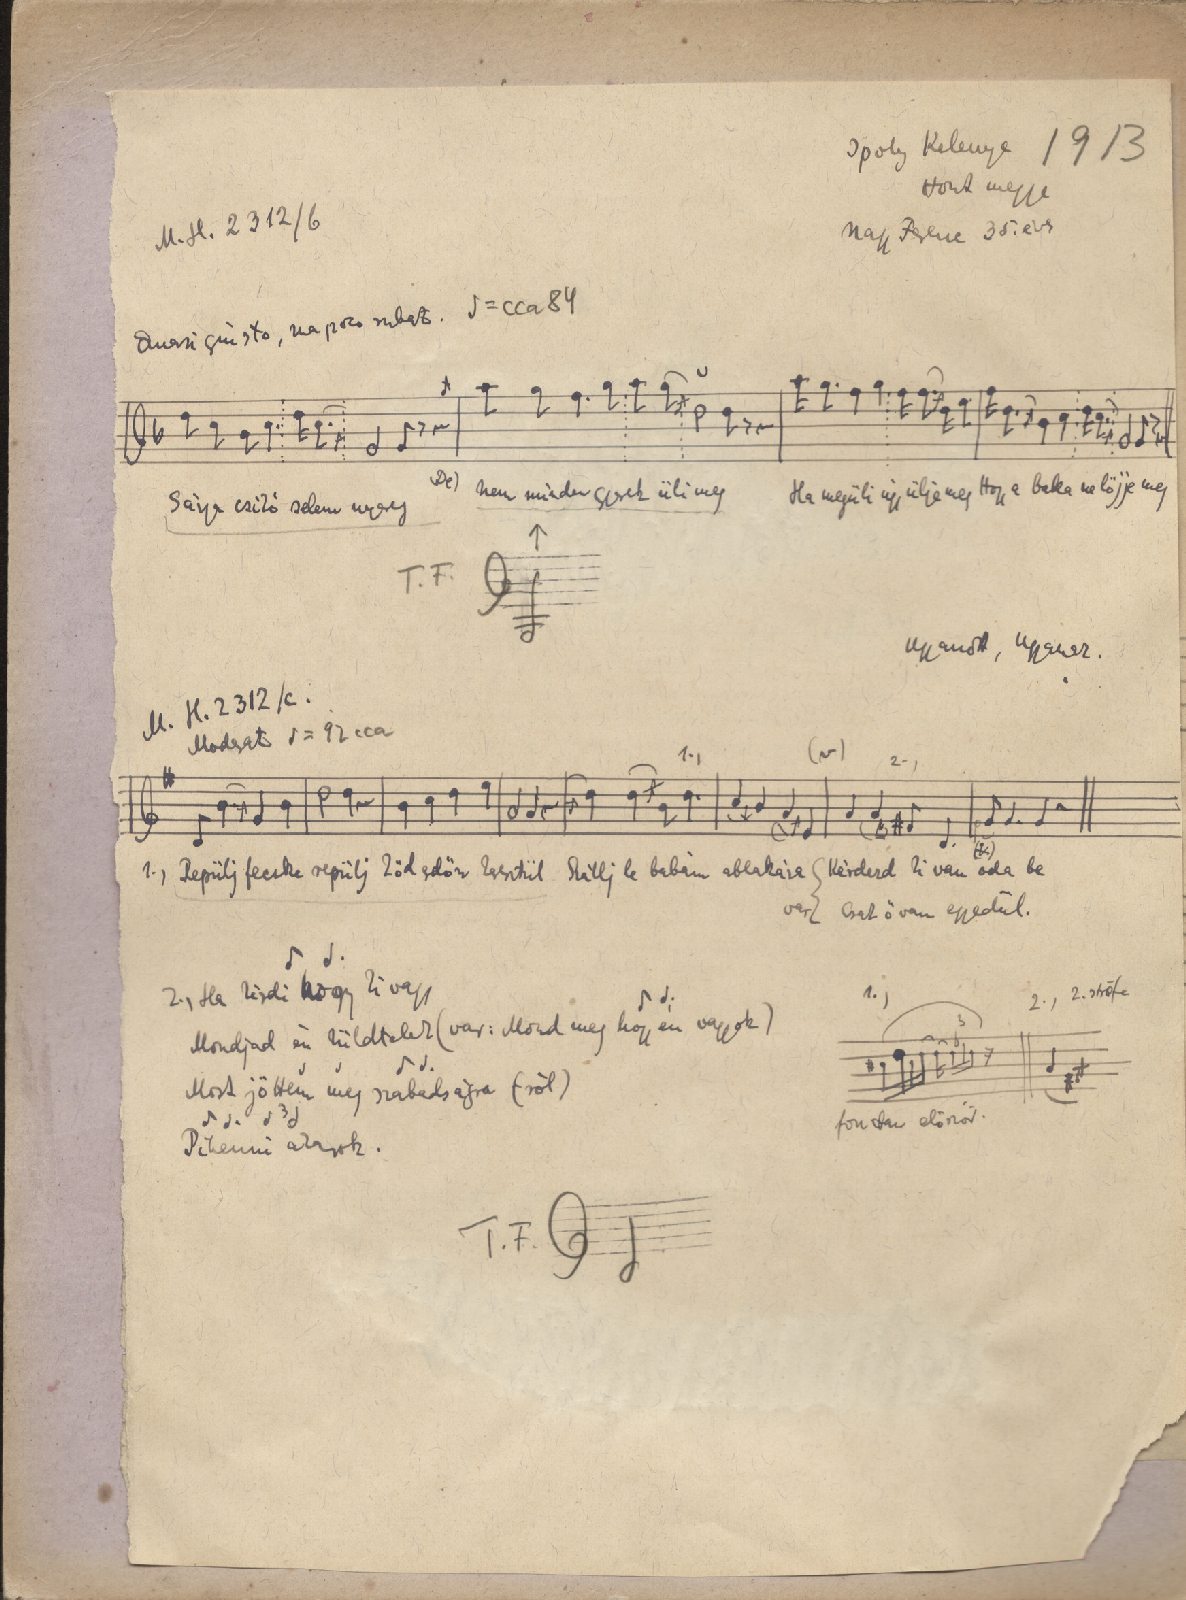 Ipoly Kelenye 1913
Hont megye
Nagy Ferenc 35. éves
M.H. 2312/b
Quasi giusto, ma poco rubato. ♪=cca 84
Sárga csikó selem nyereg (De) Nem minden gyerek üli meg Ha megüli úgy ülje meg Hogy a baka ne lőjje meg
T.F.
Ugyanott, Ugyanaz.
M. H. 2312/c.
Moderato ♪= 92 cca
1., (~) 2.,
1., Repülj fecske repülj zöd erdőn keresztül Szállj le babám ablakára Kérdezd ki van oda be
var Csak ő van egyedül.
2., Ha kérdi hogy ki vagy
Mondjad én küldtelek (var: Mond meg hogy én vagyok)
Most jöttem meg szabadságra (ról)
Pihenni akarok.
1., 3 2., 2. strófa
fonten először.
T.F.